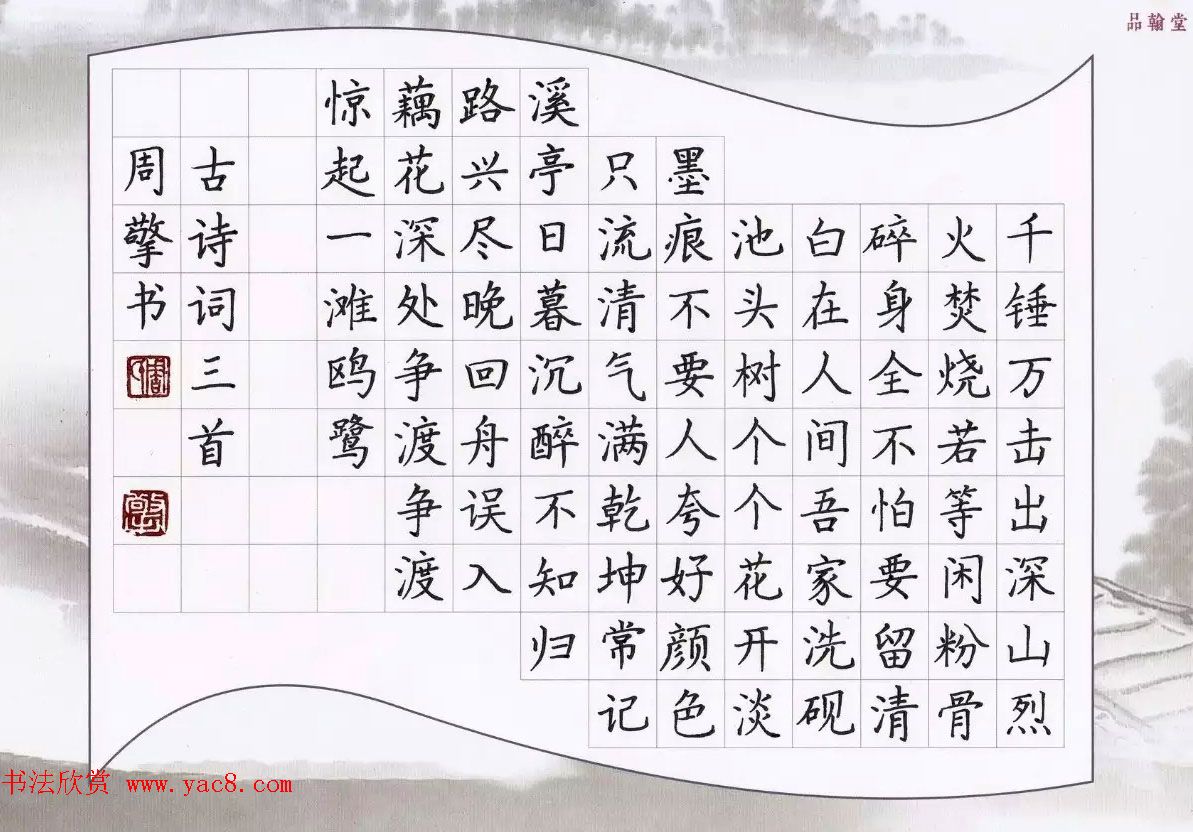 品翰堂
千锤万击出深山烈
火焚烧若等闲粉骨
碎身全不怕要留清
白在人间吾家洗砚
池头树个个花开淡
墨痕不要人夸好颜色
只流清气满乾坤常记
溪亭日暮沉醉不知归
路兴尽晚回舟误入
藕花深处争渡争渡
惊起一滩鸥鹭
古诗词三首
周擎书
书法欣赏 www.yac8.com